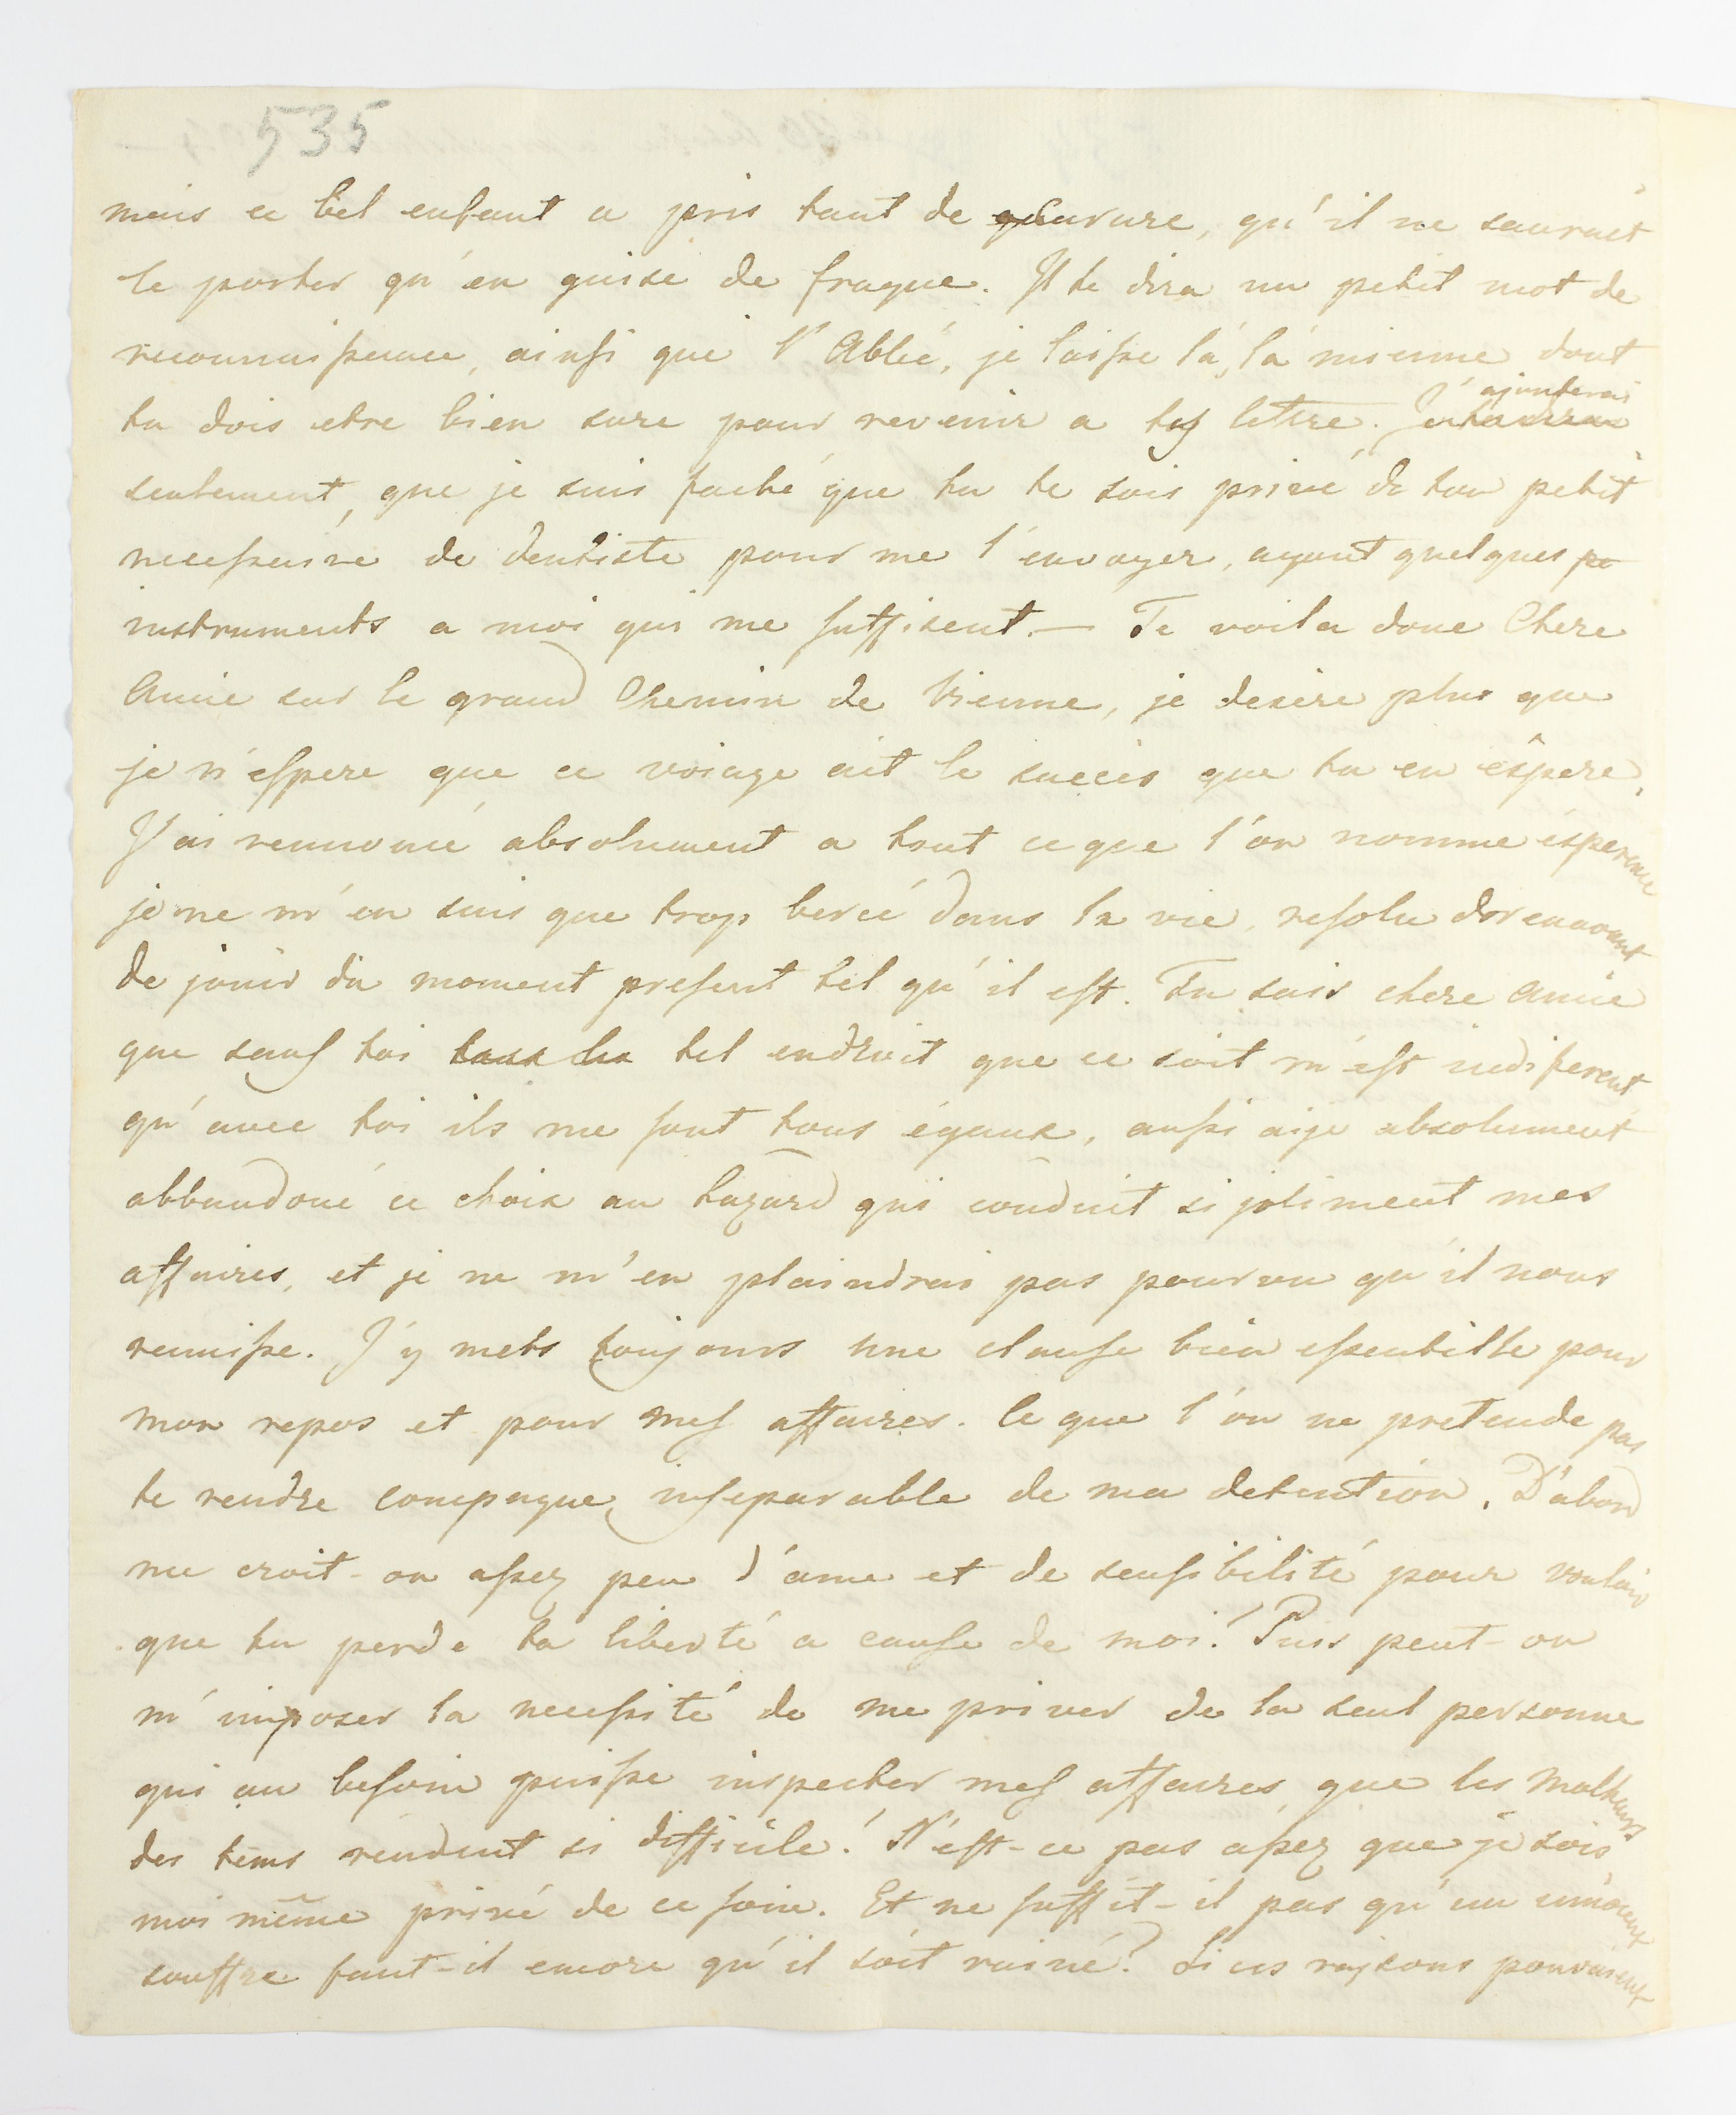 535
mais ce bel enfant a pris tant de quarure, qu'il ne sauroit
le porter qu'en guise de fraque. Il te dira un petit mot de
reconnoissance, ainsi que l'Abbé, je laisse là, la mienne dont
tu dois etre bien sure pour revenir a tes lettre. J'ajouterai
seulement, que je suis faché que tu te sois privé de ton petit
necessaire de dentiste pour me l'envoyer, ayant quelques
instruments a moi qui me suffisent. — Te voila donc Chere
Amie sur le grand Chemin de Vienne, je desire plus que
je n'espere que ce voiage ait le succès que tu en espere,
J'ai rennoncé absolument a tout ce que l'on nomme ésperence
je ne m'en suis que trop bercé dans la vie, resolu dorenavant
de jouir du moment present tel qu'il est. Tu sais chere amie
que sauf toi tel endroit que ce soit m'est indiferent
qu'avec toi ils me sont tous égaux, aussi aije absolument
abbandoné ce choix au hazard qui conduit si joliment mes
affaires, et je ne m'en plaindrai pas pourvu qu'il nous
reunisse. J'y mets toujours une clause bien essentielle pour
mon repos et pour mes affaires. Ce que l'on ne pretende pas
te rendre compagne inseparable de ma detention. D'abord
me croit-on assez peu d'ame et de sensibilité pour vouloir
que tu perde ta liberté a cause de moi! Puis peut-on
m'imposer la necessité de me priver de la seul personne
qui au besoin puisse inspecter mes affaires, que les malheurs
des tems rendent si difficile! N'est-ce pas assez que je sois
moi même privé de ce soin. Et ne suffit-il pas qu'un innocent
souffre faut-il encore qu'il soit ruiné? Si ces raisons pouvaient